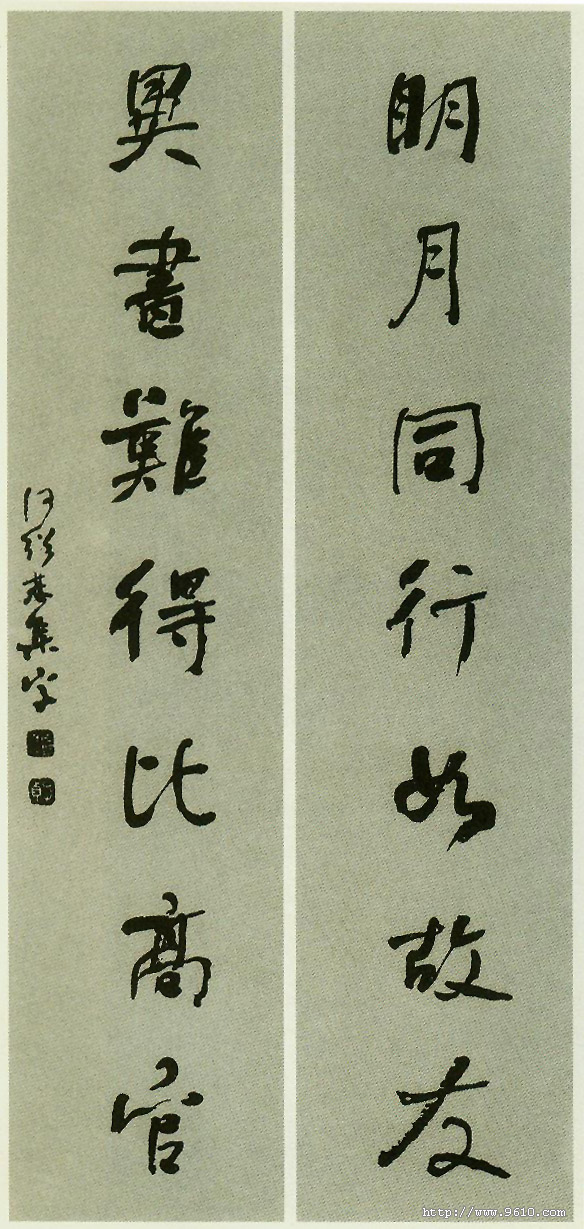 明月同行如故友
異書難得比高官
何紹基集字
http://www.9610.com